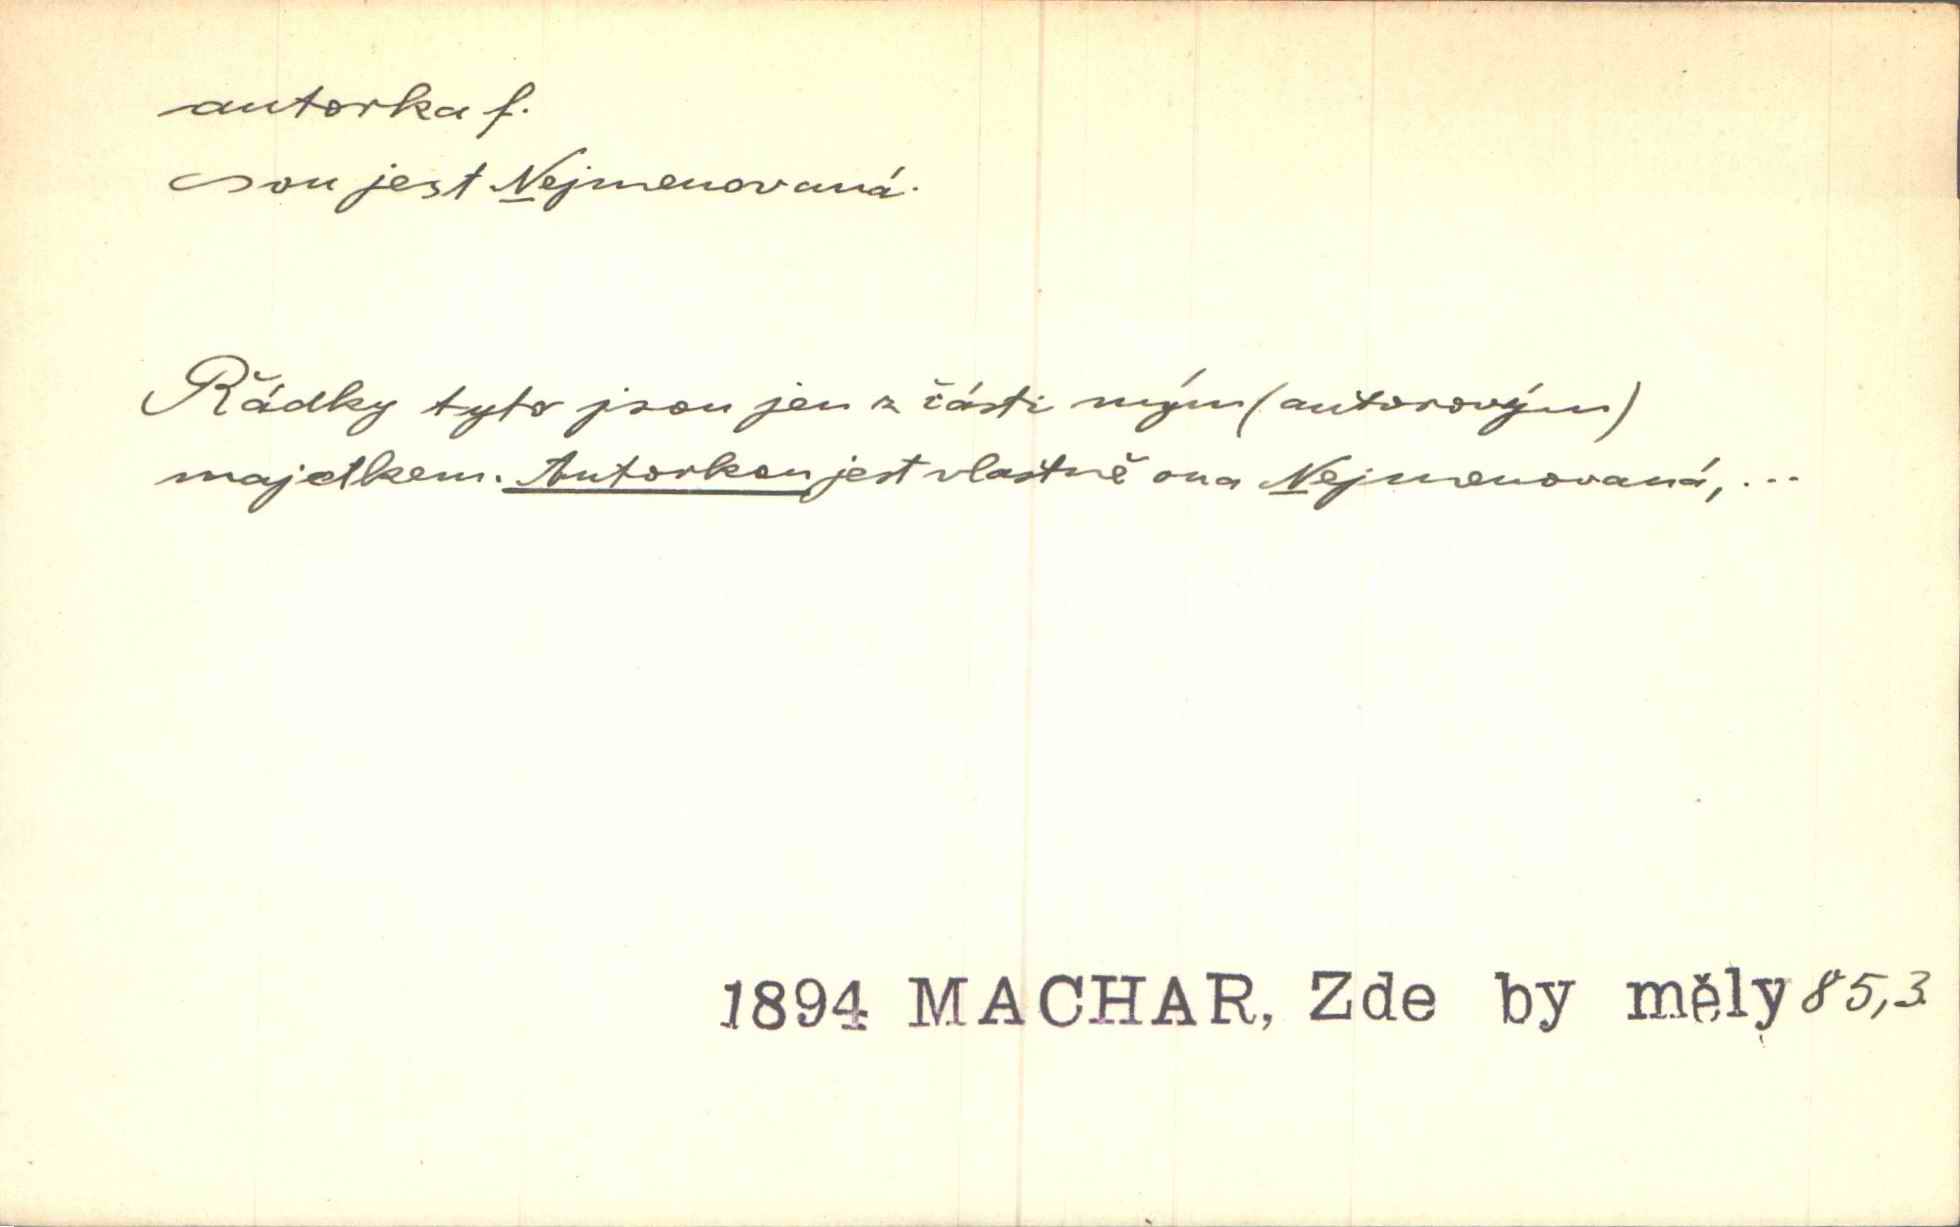 autorka f.
~ou jest Nejmenovaná.
Řádky tyto jsou jen z části mým (autorovým)
majetkem. Autorkou jest vlastně ona Nejmenovaná, ...
1894 MACHAR, Zde by měly 85,3